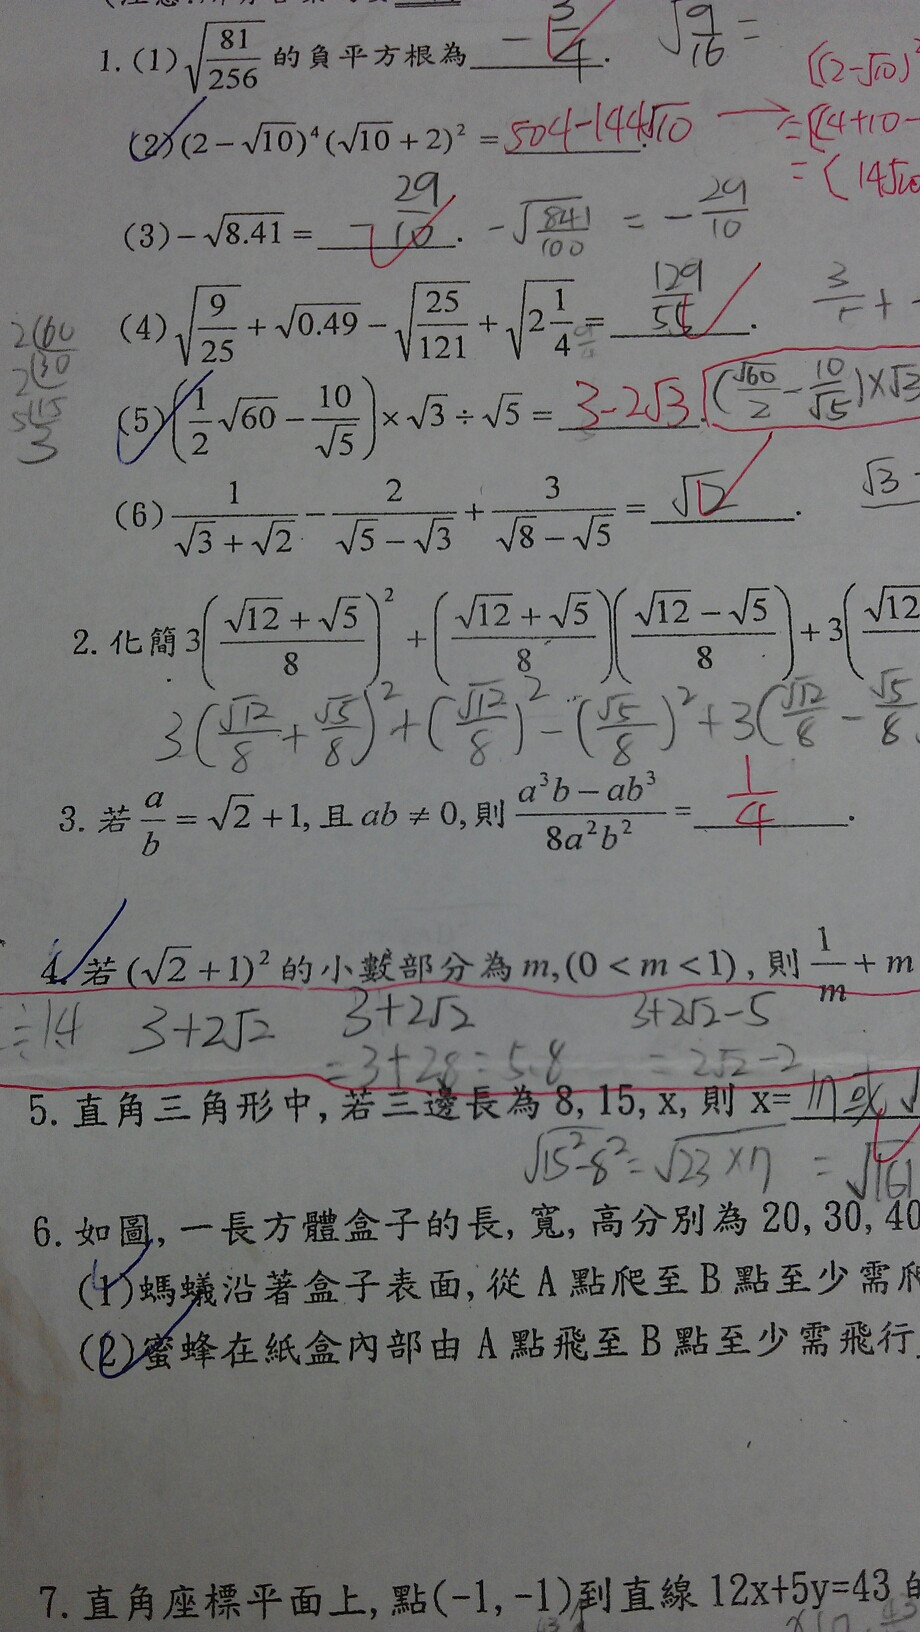 1. (1) √(81/256) 的負平方根為 -3/4 . √(9/16) =
((2-√10)²
(2) (2-√10)⁴(√10+2)² = 504-144√10 . → = [(4+10-
= ( 14√10
(3) -√8.41 = -29/10 . -√(841/100) = -29/10
(4) √(9/25) + √0.49 - √(25/121) + √(2 1/4) = 129/55 . 3/5 +
2(60
2(30
5(15
3
(5) (1/2 √60 - 10/√5) × √3 ÷ √5 = 3-2√3 . (√60/2 - 10/√5) × √3
(6) 1/(√3+√2) - 2/(√5-√3) + 3/(√8-√5) = √2 . √3 -
2. 化簡 3((√12+√5)/8)² + ((√12+√5)/8)((√12-√5)/8) + 3(√12
3(√12/8 + √5/8)² + (√12/8)² - (√5/8)² + 3(√12/8 - √5/8
3. 若 a/b = √2+1, 且 ab ≠ 0, 則 (a³b-ab³)/(8a²b²) = 1/4 .
4. 若 (√2+1)² 的小數部分為 m, (0 < m < 1), 則 1/m + m
≒1.4 3+2√2 3+2√2 3+2√2-5
= 3+2.8 = 5.8 = 2√2-2
5. 直角三角形中, 若三邊長為 8, 15, x, 則 x= 17 或 √
√(15²-8²) = √(23×7) = √161
6. 如圖, 一長方體盒子的長, 寬, 高分別為 20, 30, 40
(1) 螞蟻沿著盒子表面, 從 A 點爬至 B 點至少需爬
(2) 蜜蜂在紙盒內部由 A 點飛至 B 點至少需飛行
7. 直角座標平面上, 點(-1, -1)到直線 12x+5y=43 的